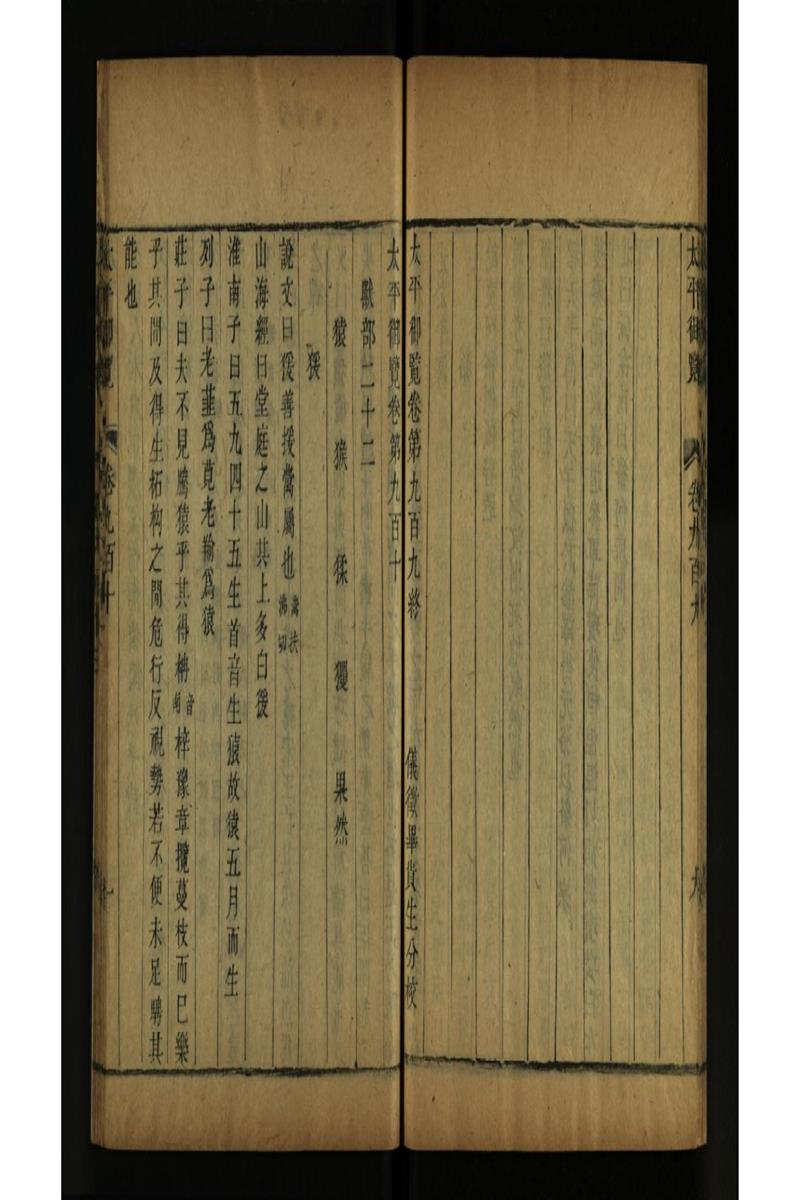 太平御覽 卷九百九 九
太平御覽卷第九百九終 儀徵畢貴生分校
太平御覽卷第九百十
獸部二十二
猿 猴 猱 玃 果然
猨
說文曰猨善援禺屬也
山海經曰堂庭之山其上多白猨
淮南子曰五九四十五生首音生猿故猿五月而生
列子曰老韭爲莧老羭爲猿
莊子曰夫不見騰猿乎其得枏音南梓豫章攬蔓枝而已樂
乎其間及得生柘枸之間危行反視勢若不便未足騁其
能也
太平御覽 卷九百十 一